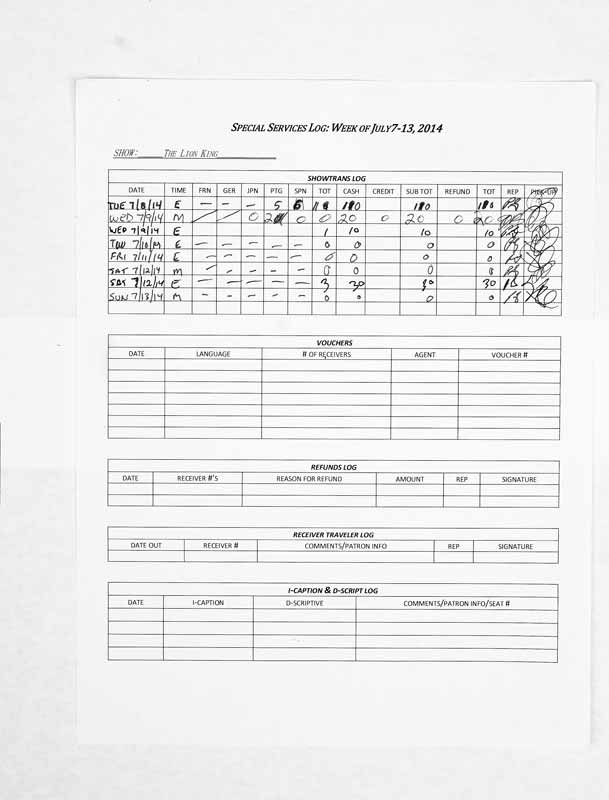 SPECIAL SERVICES LOG: WEEK OF JULY7-13, 2014
SHOW: THE LION KING
SHOWTRANS LOG
DATE TIME FRN GER JPN PTG SPN TOT CASH CREDIT SUB TOT REFUND TOT REP
TUE 7/8/14 E — — — 5 180 180 180
WED 7/9/14 M 0 0 0 20 0 20 0 20
WED 7/9/14 E 1 10 10 10
7/10/14 E — — — — — 0 0 0 0
FRI 7/11/14 E — — — — 0 0 0 0
SAT 7/12/14 M — — — — — 0 0 0 0
SAT 7/12/14 E — — — — — 3 30 30 30
SUN 7/13/14 M — — — — — 0 0 0 0
VOUCHERS
DATE LANGUAGE # OF RECEIVERS AGENT VOUCHER #
REFUNDS LOG
DATE RECEIVER #'S REASON FOR REFUND AMOUNT REP SIGNATURE
RECEIVER TRAVELER LOG
DATE OUT RECEIVER # COMMENTS/PATRON INFO REP SIGNATURE
I-CAPTION & D-SCRIPT LOG
DATE I-CAPTION D-SCRIPTIVE COMMENTS/PATRON INFO/SEAT #